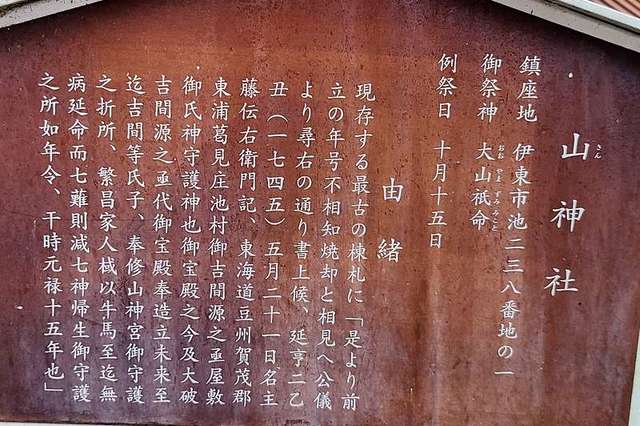 山神社
さん
鎮座地 伊東市池二三八番地の一
御祭神 大山祇命
おお やま ずみみこと
例祭日 十月十五日
由緒
現存する最古の棟札に「是より前
立の年号不相知焼却と相見へ公儀
より尋右の通り書上候、延亨二乙
丑(一七四五)五月二十一日名主
藤伝右衛門記、東海道豆州賀茂郡
東浦葛見庄池村御吉間源之亟屋敷
御氏神守護神也御宝殿之今及大破
吉間源之亟代御宝殿奉造立未来至
迄吉間等氏子、奉修山神宮御守護
之折所、繁昌家人棫以牛馬至迄無
病延命而七難則減七神帰生御守護
之所如年令、干時元禄十五年也」